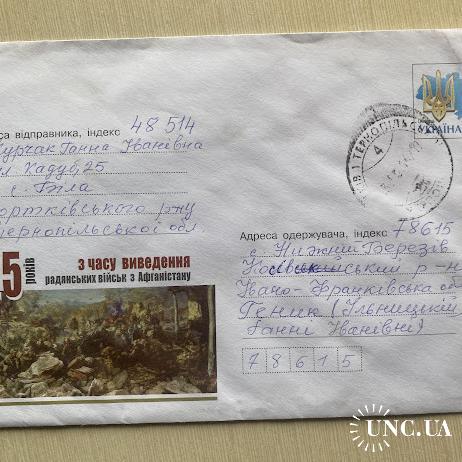 УКРАЇНА
са відправника, індекс 48514
Курчак Ганна Іванівна
ул Кадуб, 25
с. Біла
Чортківського р-ну
Тернопільської обл
5 років
з часу виведення
радянських військ з Афганістану
Адреса одержувача, індекс 78615
с. Нижній Березів
Косівський р-н
Івано-Франківська об
Геник (Ільницькій
Ганні Іванівні)
78615
UNC.UA